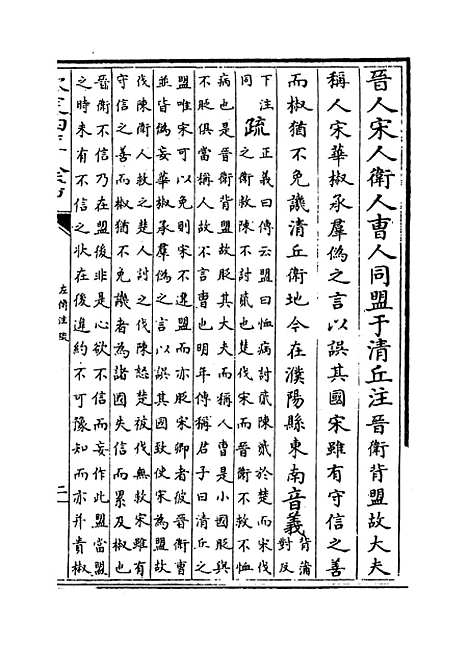 晉人宋人衛人曹人同盟于清丘注晉衛背盟故大夫
稱人宋華椒承羣偽之言以誤其國宋雖有守信之善
而椒猶不免譏清丘衛地今在濮陽縣東南音義背蒲
對反
下注
同
疏正義曰傳云盟曰恤病討貳陳貳於楚而宋伐
之衛救陳不討貳也楚伐宋而晉衛不救不恤
病也是晉衛背盟故貶其大夫而稱人曹是小國貶與
不貶俱當稱人故不言曹也明年傳稱君子曰清丘之
盟唯宋可以免則宋不違盟而亦貶宋卿者彼晉衛曹
並皆偽妄華椒承羣偽之言以誤其國致使宋為盟故
伐陳衛人救之楚人討之伐陳楚被伐無救宋雖有
守信之善而椒猶不免譏者為諸國失信而累及椒也
晉衛不信乃在盟後非是心欲不信而妄作此盟當盟
之時未有不信之狀在後違約不可豫知而亦并責椒
左傳注疏